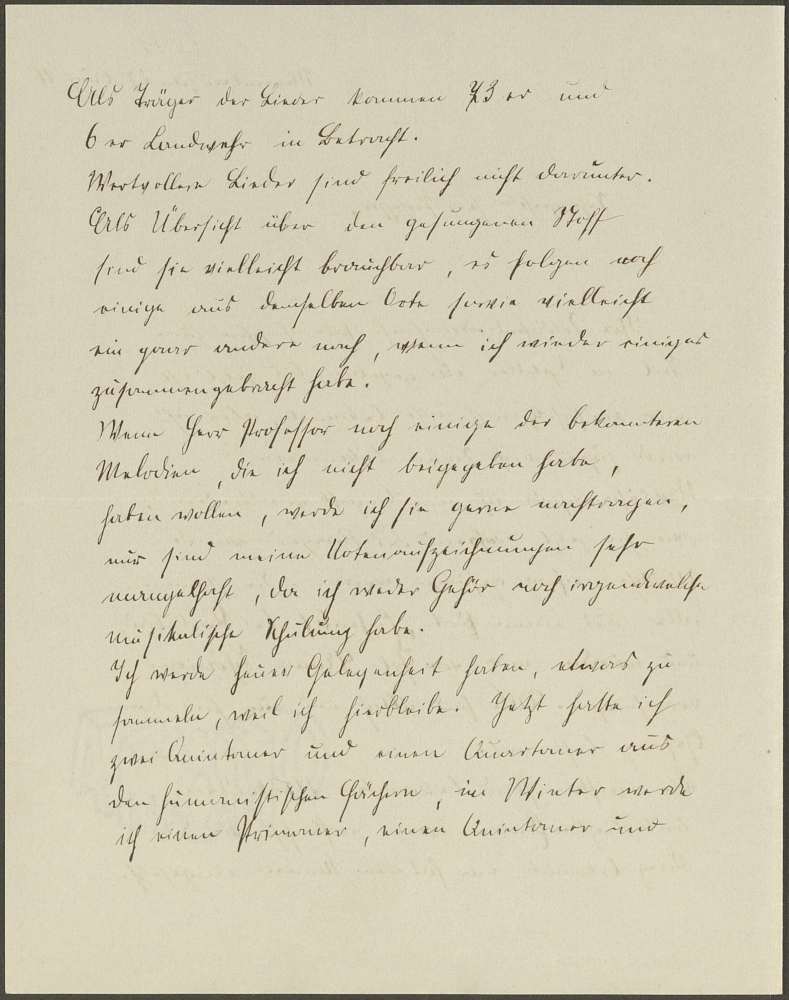 Als Träger der Lieder kommen 73 er und
6 er Landwehr in Betracht.
Wertvollere Lieder sind freilich nicht darunter.
Als Übersicht über den gesungenen Stoff
sind sie vielleicht brauchbar, es folgen noch
einige aus demselben Orte sowie vielleicht
ein paar andere noch, wenn ich wieder einiges
zusammengebracht habe.
Wenn Herr Professor noch einige der bekannteren
Melodien, die ich nicht beigegeben habe,
haben wollen, werde ich sie gerne nachtragen,
nur sind meine Notenaufzeichnungen sehr
mangelhaft, da ich weder Gehör noch irgendwelche
musikalische Schulung habe.
Ich werde heuer Gelegenheit haben, etwas zu
sammeln, weil ich hierbleibe. Jetzt hatte ich
zwei Quintaner und einen Quartaner aus
den humanistischen Fächern, im Winter werde
ich einen Primaner, einen Quintaner und